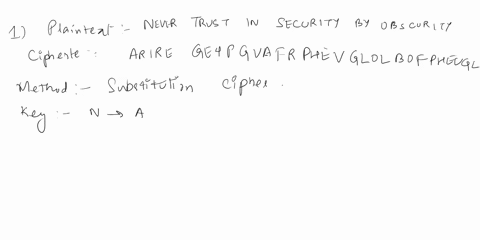 1) Plaintext :- NEVER TRUST IN SECURITY BY OBSCURITY
Cipherte :- ARIRE GE4PGVAFRPHEVGLOLBOFPHEVGL
Method :- Substitution Cipher .
Key :- N → A